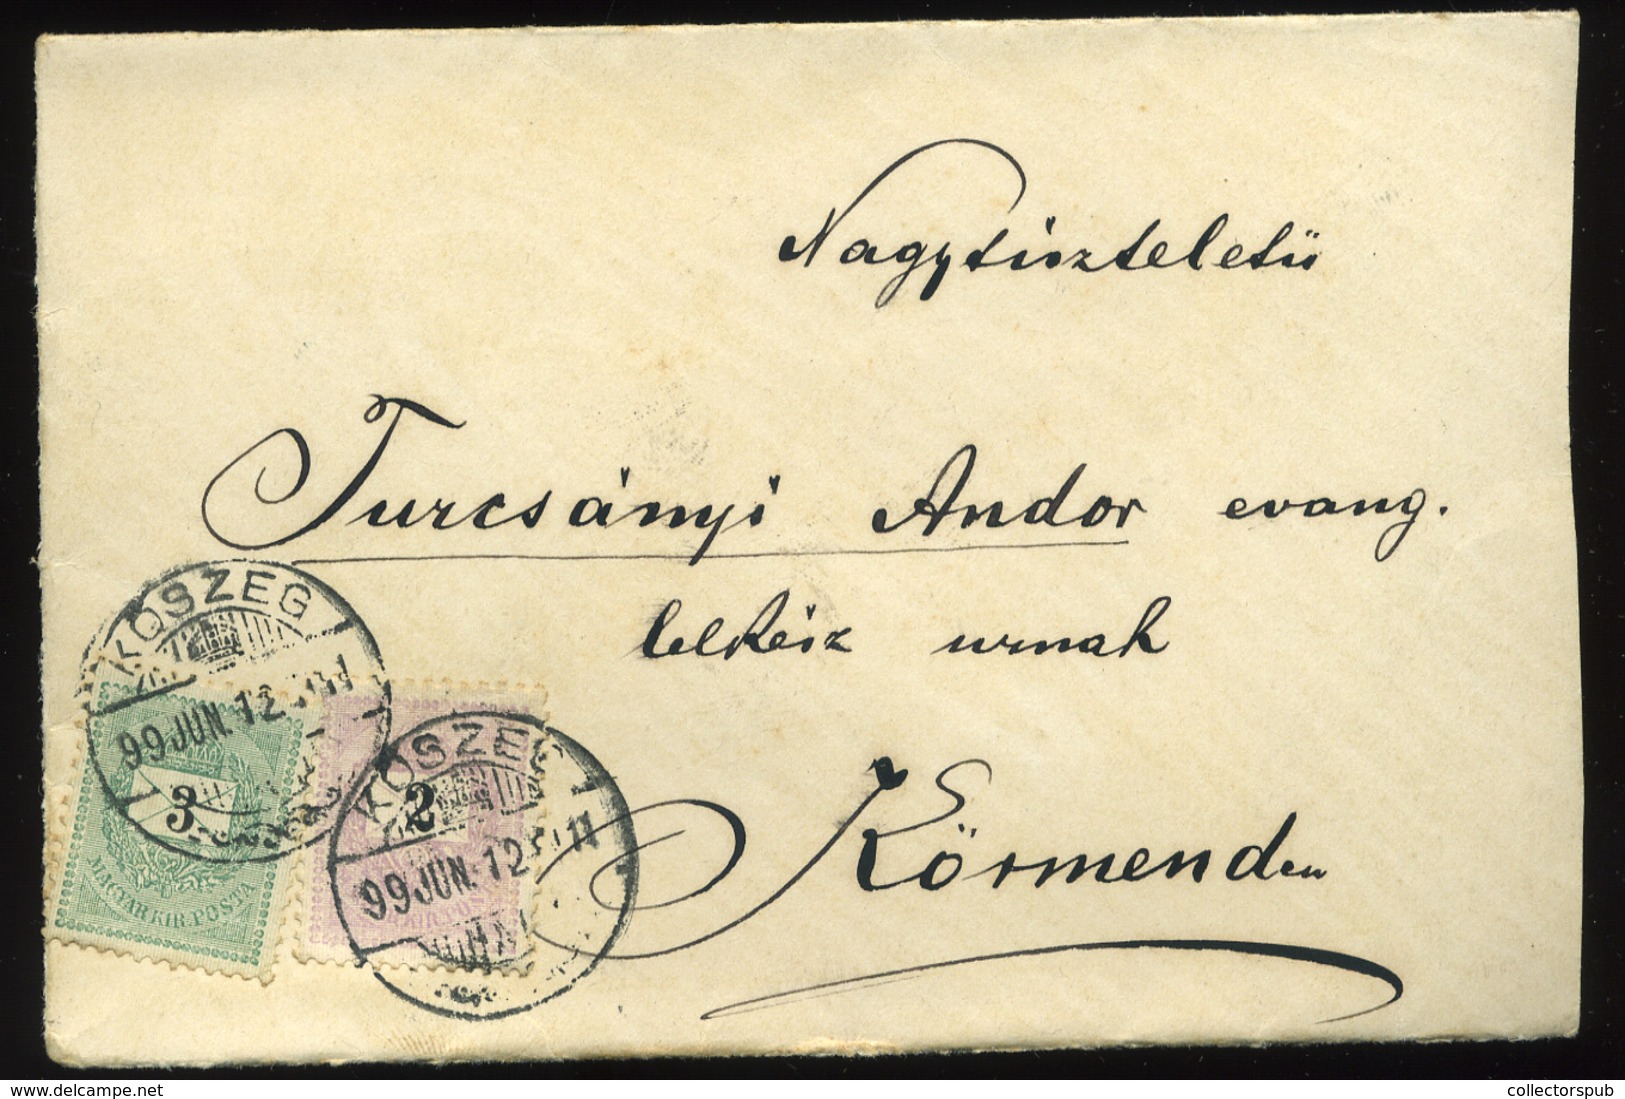 Nagytiszteletü
Turcsányi Andor evang.
lelkész urnak
Körmenden
KŐSZEG
99 JUN. 12
3
MAGYAR KIR. POSTA
KŐSZEG
99 JUN. 12
2
delcampe.net
collectorspub